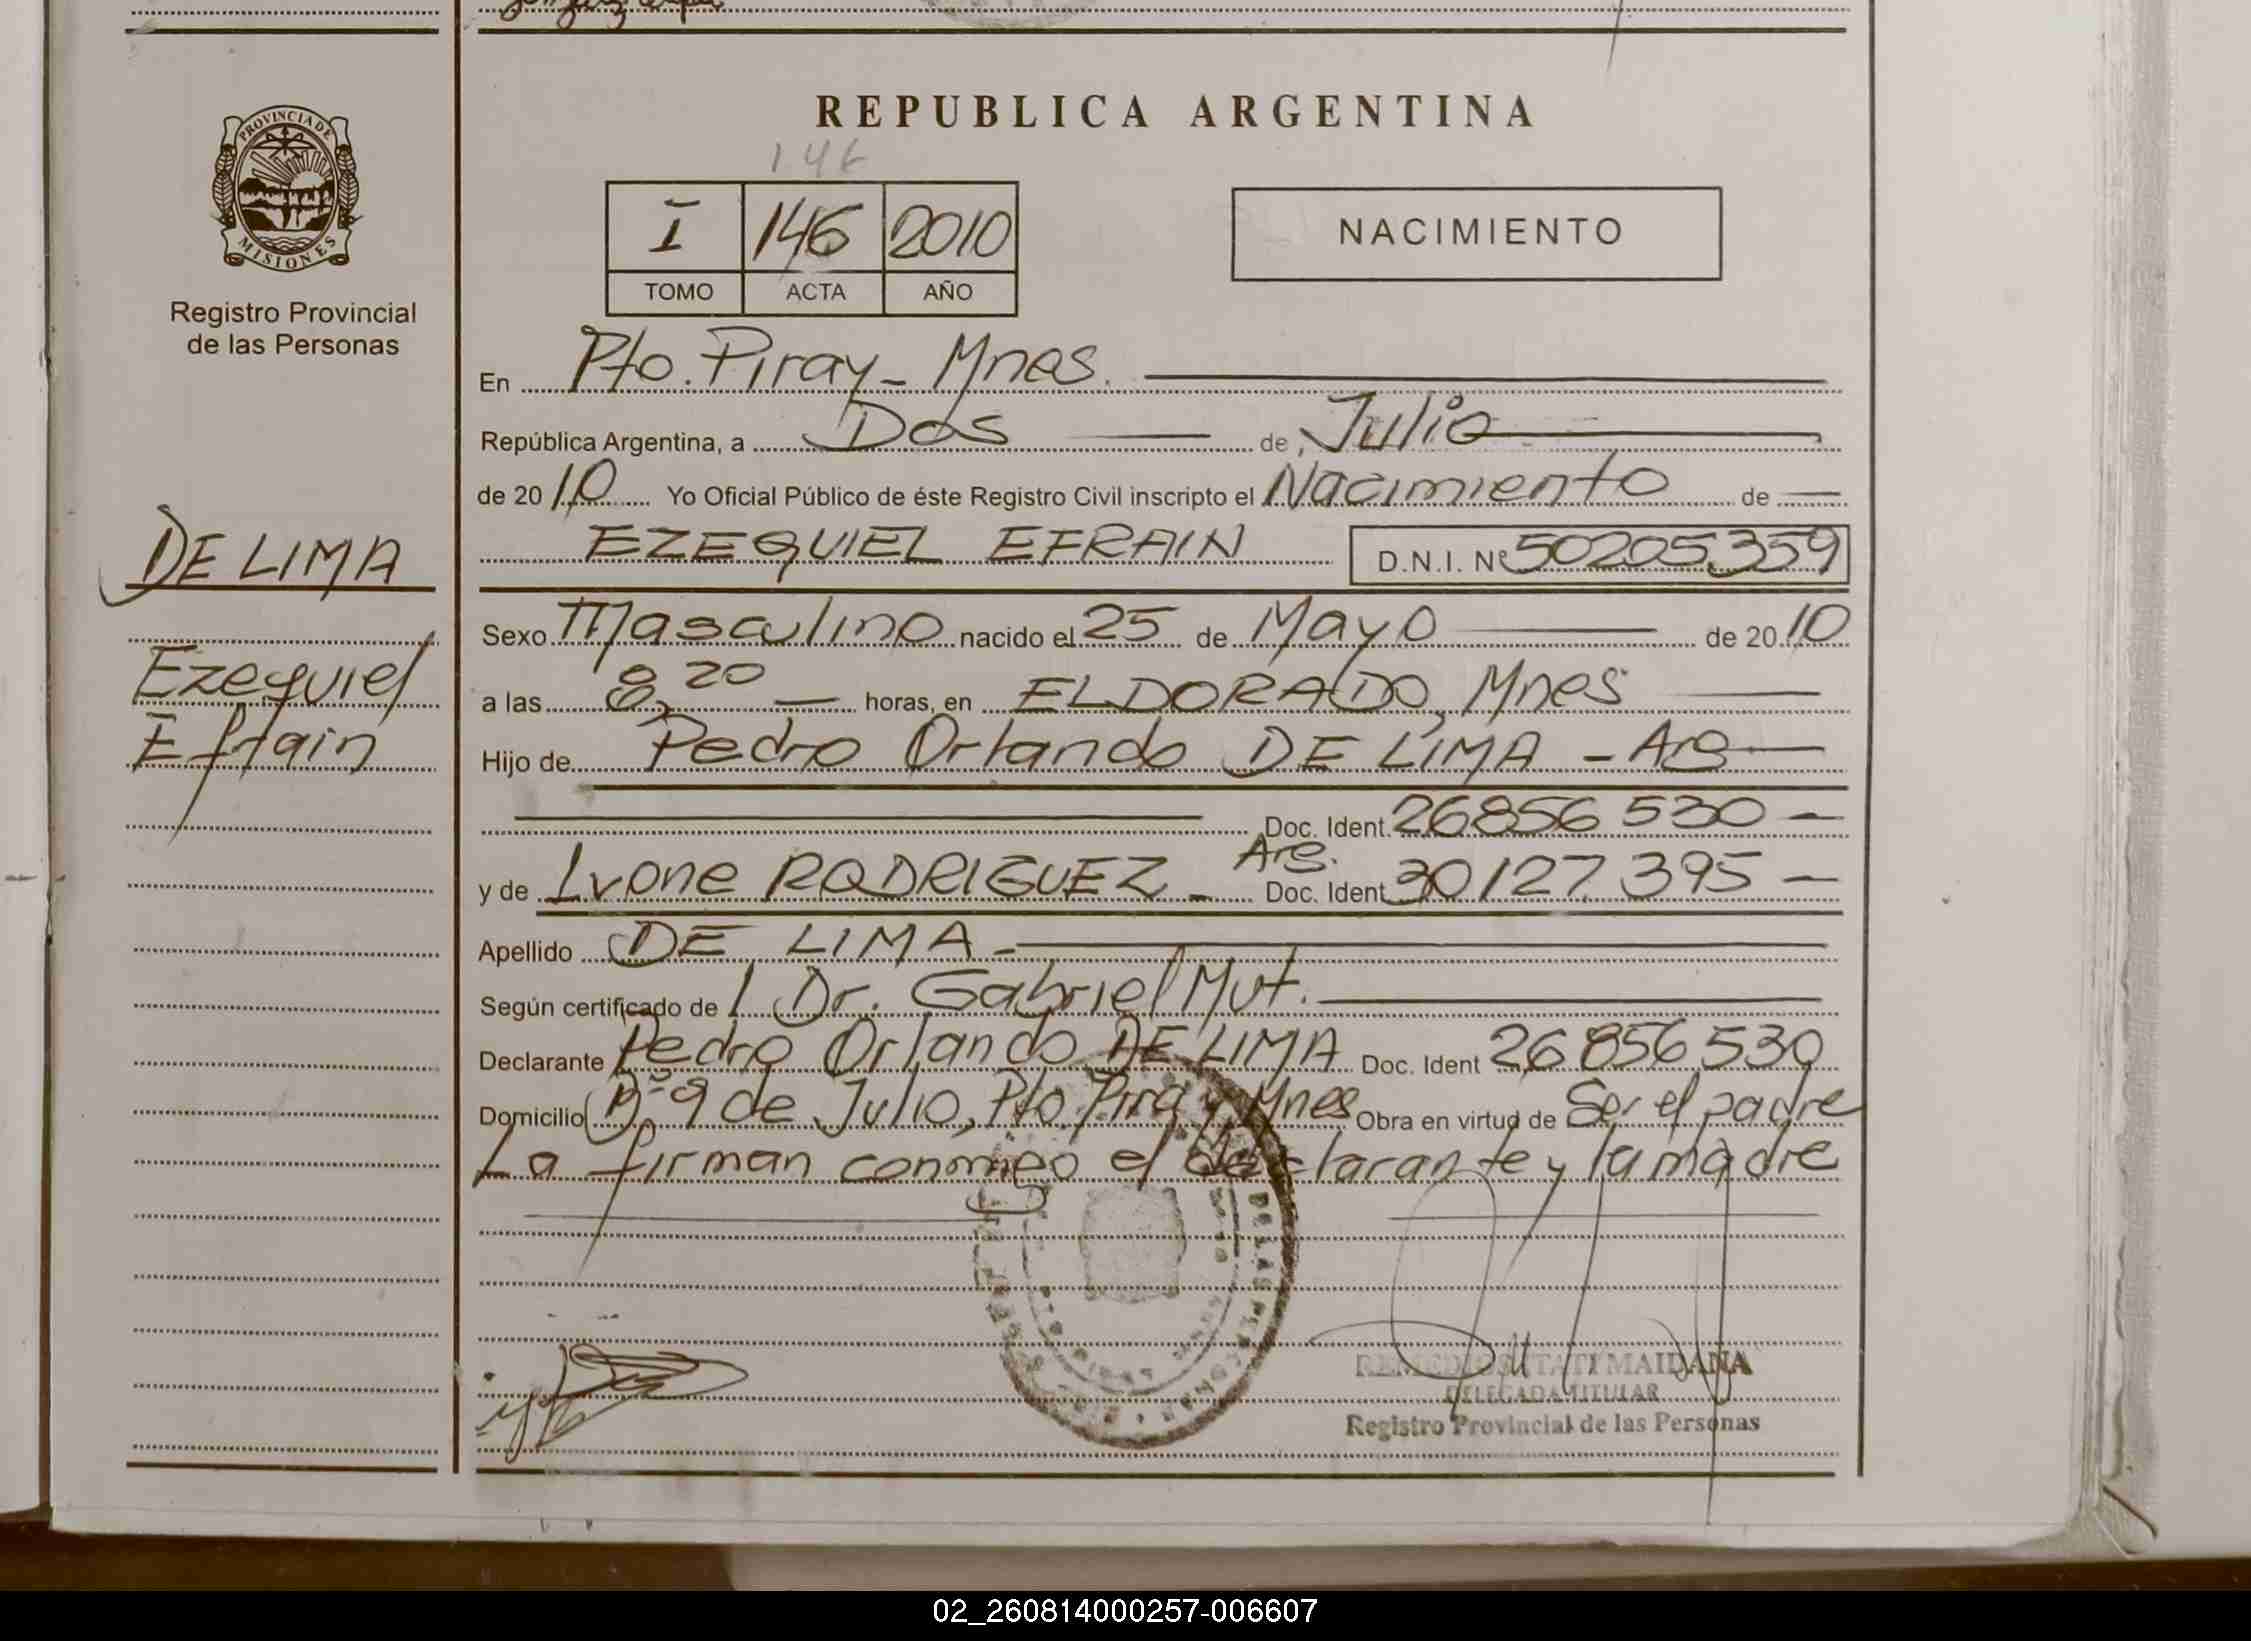 REPUBLICA ARGENTINA
146
PROVINCIA DE
MISIONES
Registro Provincial
de las Personas
I 146 2010
TOMO ACTA AÑO
NACIMIENTO
En Pto. Piray - Mnes.
República Argentina, a Dos de Julio
de 2010 Yo Oficial Público de éste Registro Civil inscripto el Nacimiento de
EZEQUIEL EFRAIN D.N.I. Nº 50205359
DE LIMA
Ezequiel
Efrain
Sexo Masculino nacido el 25 de Mayo de 2010
a las 8,20 horas, en ELDORADO, Mnes
Hijo de Pedro Orlando DE LIMA - Arg
Doc. Ident. 26856530
y de Ivone RODRIGUEZ - Arg. Doc. Ident 30127395
Apellido DE LIMA -
Según certificado de Dr. Gabriel Mut.
Declarante Pedro Orlando DE LIMA Doc. Ident 26856530
Domicilio Bº 9 de Julio, Pto. Piray Mnes Obra en virtud de Ser el padre
La firman conmigo el declarante y la madre
DE LAS PERSONAS
REMEDIOS ITATI MAIDANA
DELEGADA TITULAR
Registro Provincial de las Personas
02_260814000257-006607